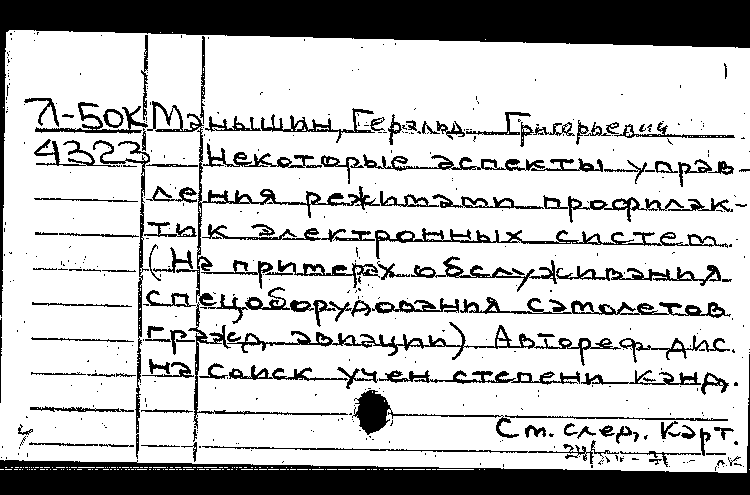 1
Л-50К Манышин, Геральд Григорьевич
4323 Некоторые аспекты управ-
ления режимами профилак-
тик электронных систем
(На примерах обслуживания
спецоборудования самолетов
гражд. авиации) Автореф. дис.
на соиск учен степени канд.
См. след. карт.